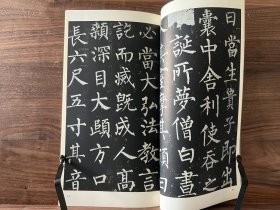 日當生貴子即出
囊中舍利使吞之
誕所夢僧白晝
必當大弘法教言
訖而滅既成人高
顙深目大頤方口
長六尺五寸其音